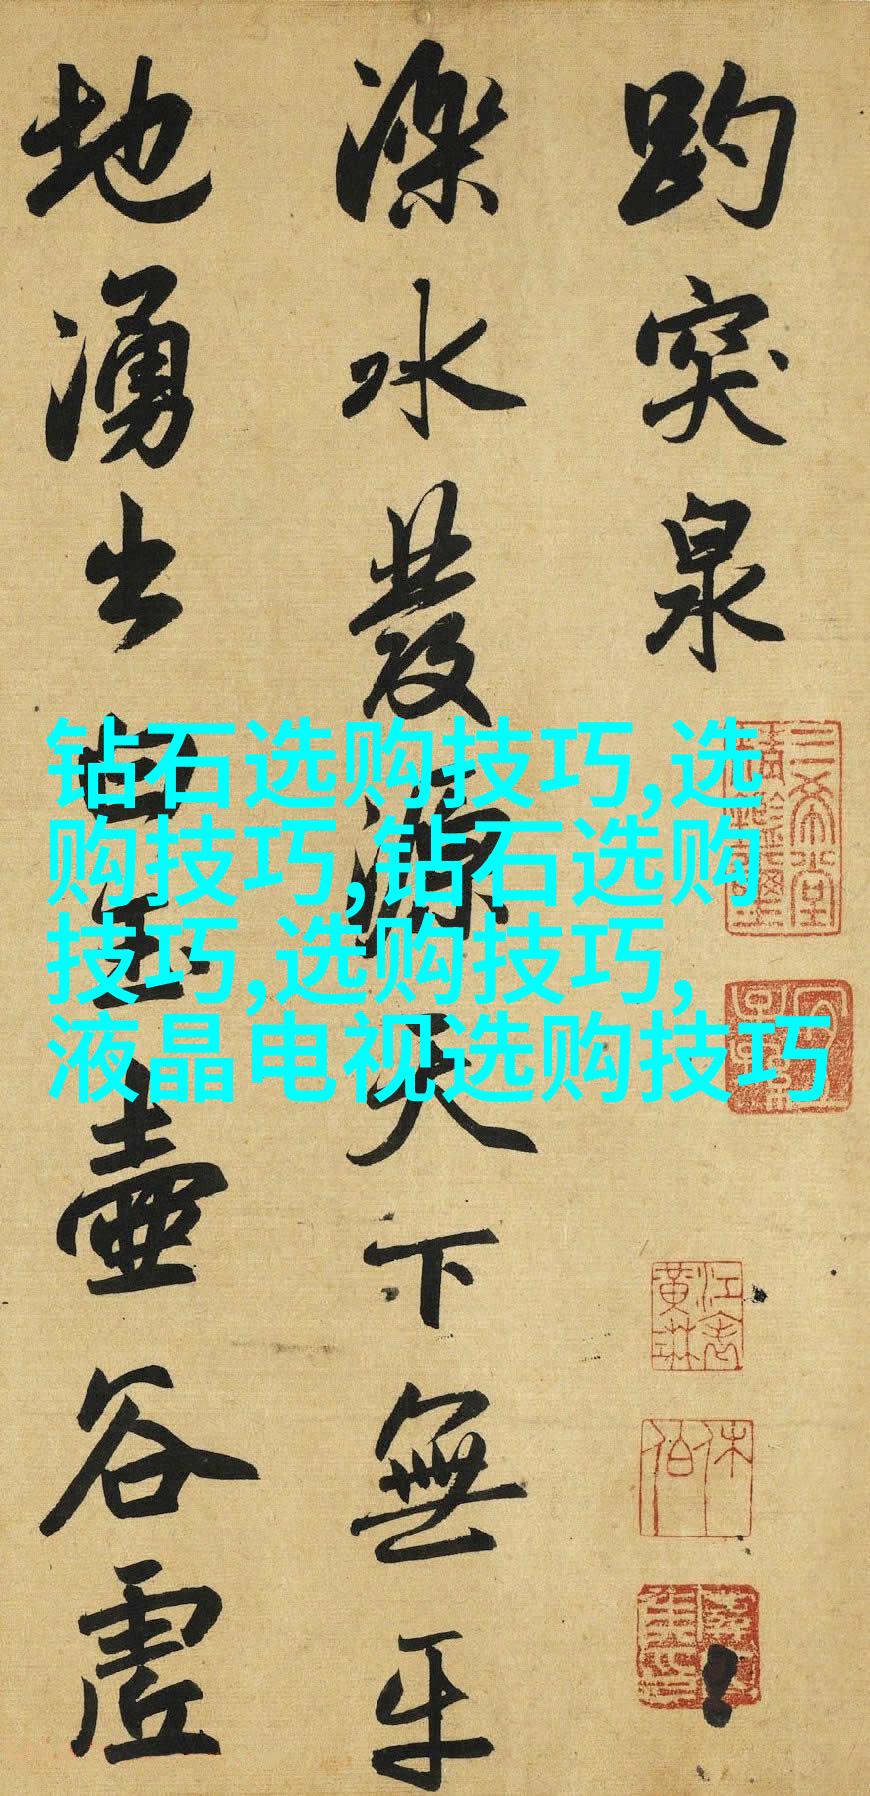 趵突泉
濼水發源天下無平
地湧出白玉壺谷虚
钻石选购技巧,选
购技巧,钻石选购
技巧,选购技巧,
液晶电视选购技巧